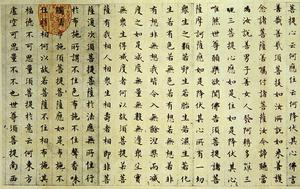 菩提心云何應住云何降伏其心佛言
善哉善哉須菩提如汝所說如來善護
念諸菩薩善付囑諸菩薩汝今諦聽當
為汝說善男子善女人發阿耨多羅三
藐三菩提心應如是住如是降伏其心
唯然世尊願樂欲聞佛告須菩提諸菩
薩摩訶薩應如是降伏其心所有一切
眾生之類若卵生若胎生若濕生若化
生若有色若無色若有想若無想若非有
想非無想我皆令入無餘涅槃而滅度
之如是滅度無量無數無邊眾生實
無眾生得滅度者何以故須菩提若菩
薩有我相人相眾生相壽者相即非菩
薩復次須菩提菩薩於法應無所住行
於布施所謂不住色布施不住聲香味
觸法布施須菩提菩薩應如是布施不
住於相何以故若菩薩不住相布施其
福德不可思量須菩提於意云何東方
虛空可思量不不也世尊須菩提南西